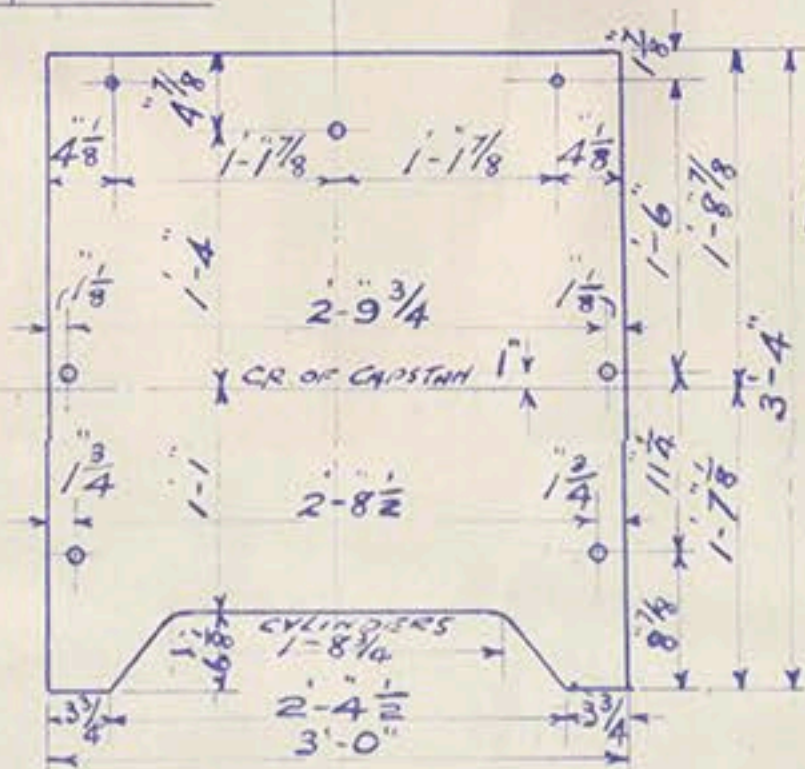 1 7/8"
4 7/8"
4 1/8"
1'-1" 7/8
1'-1" 7/8
4 1/8"
1'-6"
1'-8" 7/8
3'-4"
1'-4"
1 1/8"
2'-9" 3/4
1 1/8"
CR OF CAPSTAN 1"
1 3/4"
1'-1"
2'-8" 1/2
1 3/4"
11 1/4"
1'-7" 1/8
8 7/8"
CYLINDERS
1-8 3/4
3 3/4
2'-4" 1/2
3 3/4
3'-0"